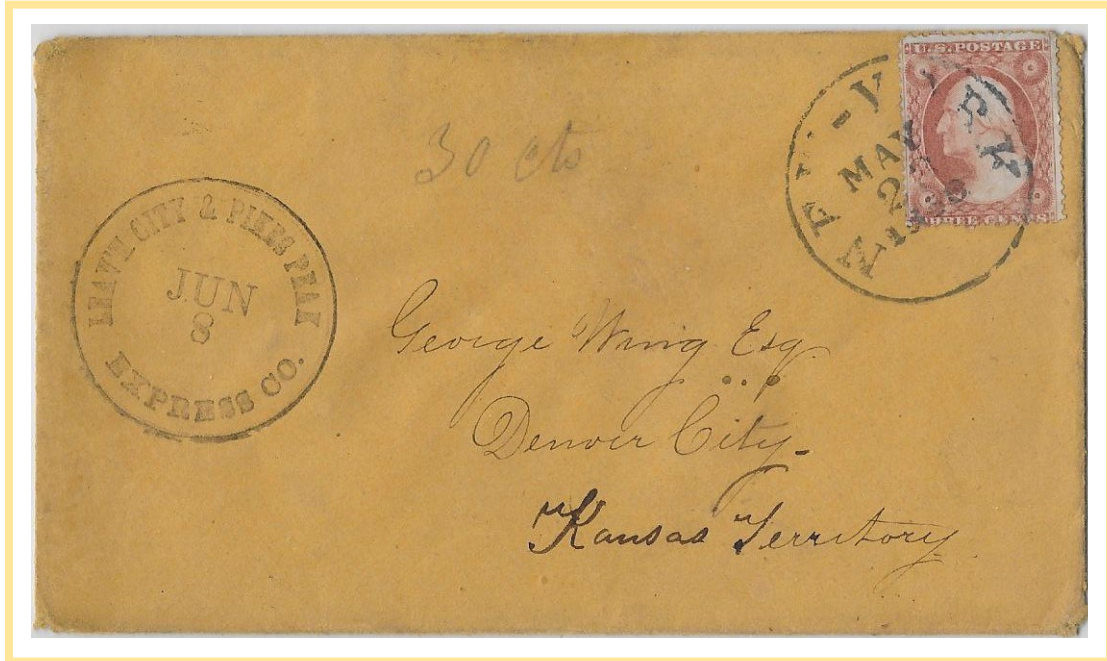 U.S. POSTAGE
THREE CENTS
NEW-YORK
MAY
30 cts
LEAV'H CITY & PIKES PEAK
JUN
8
EXPRESS CO.
George Wing Esq.
Denver City-
Kansas Territory